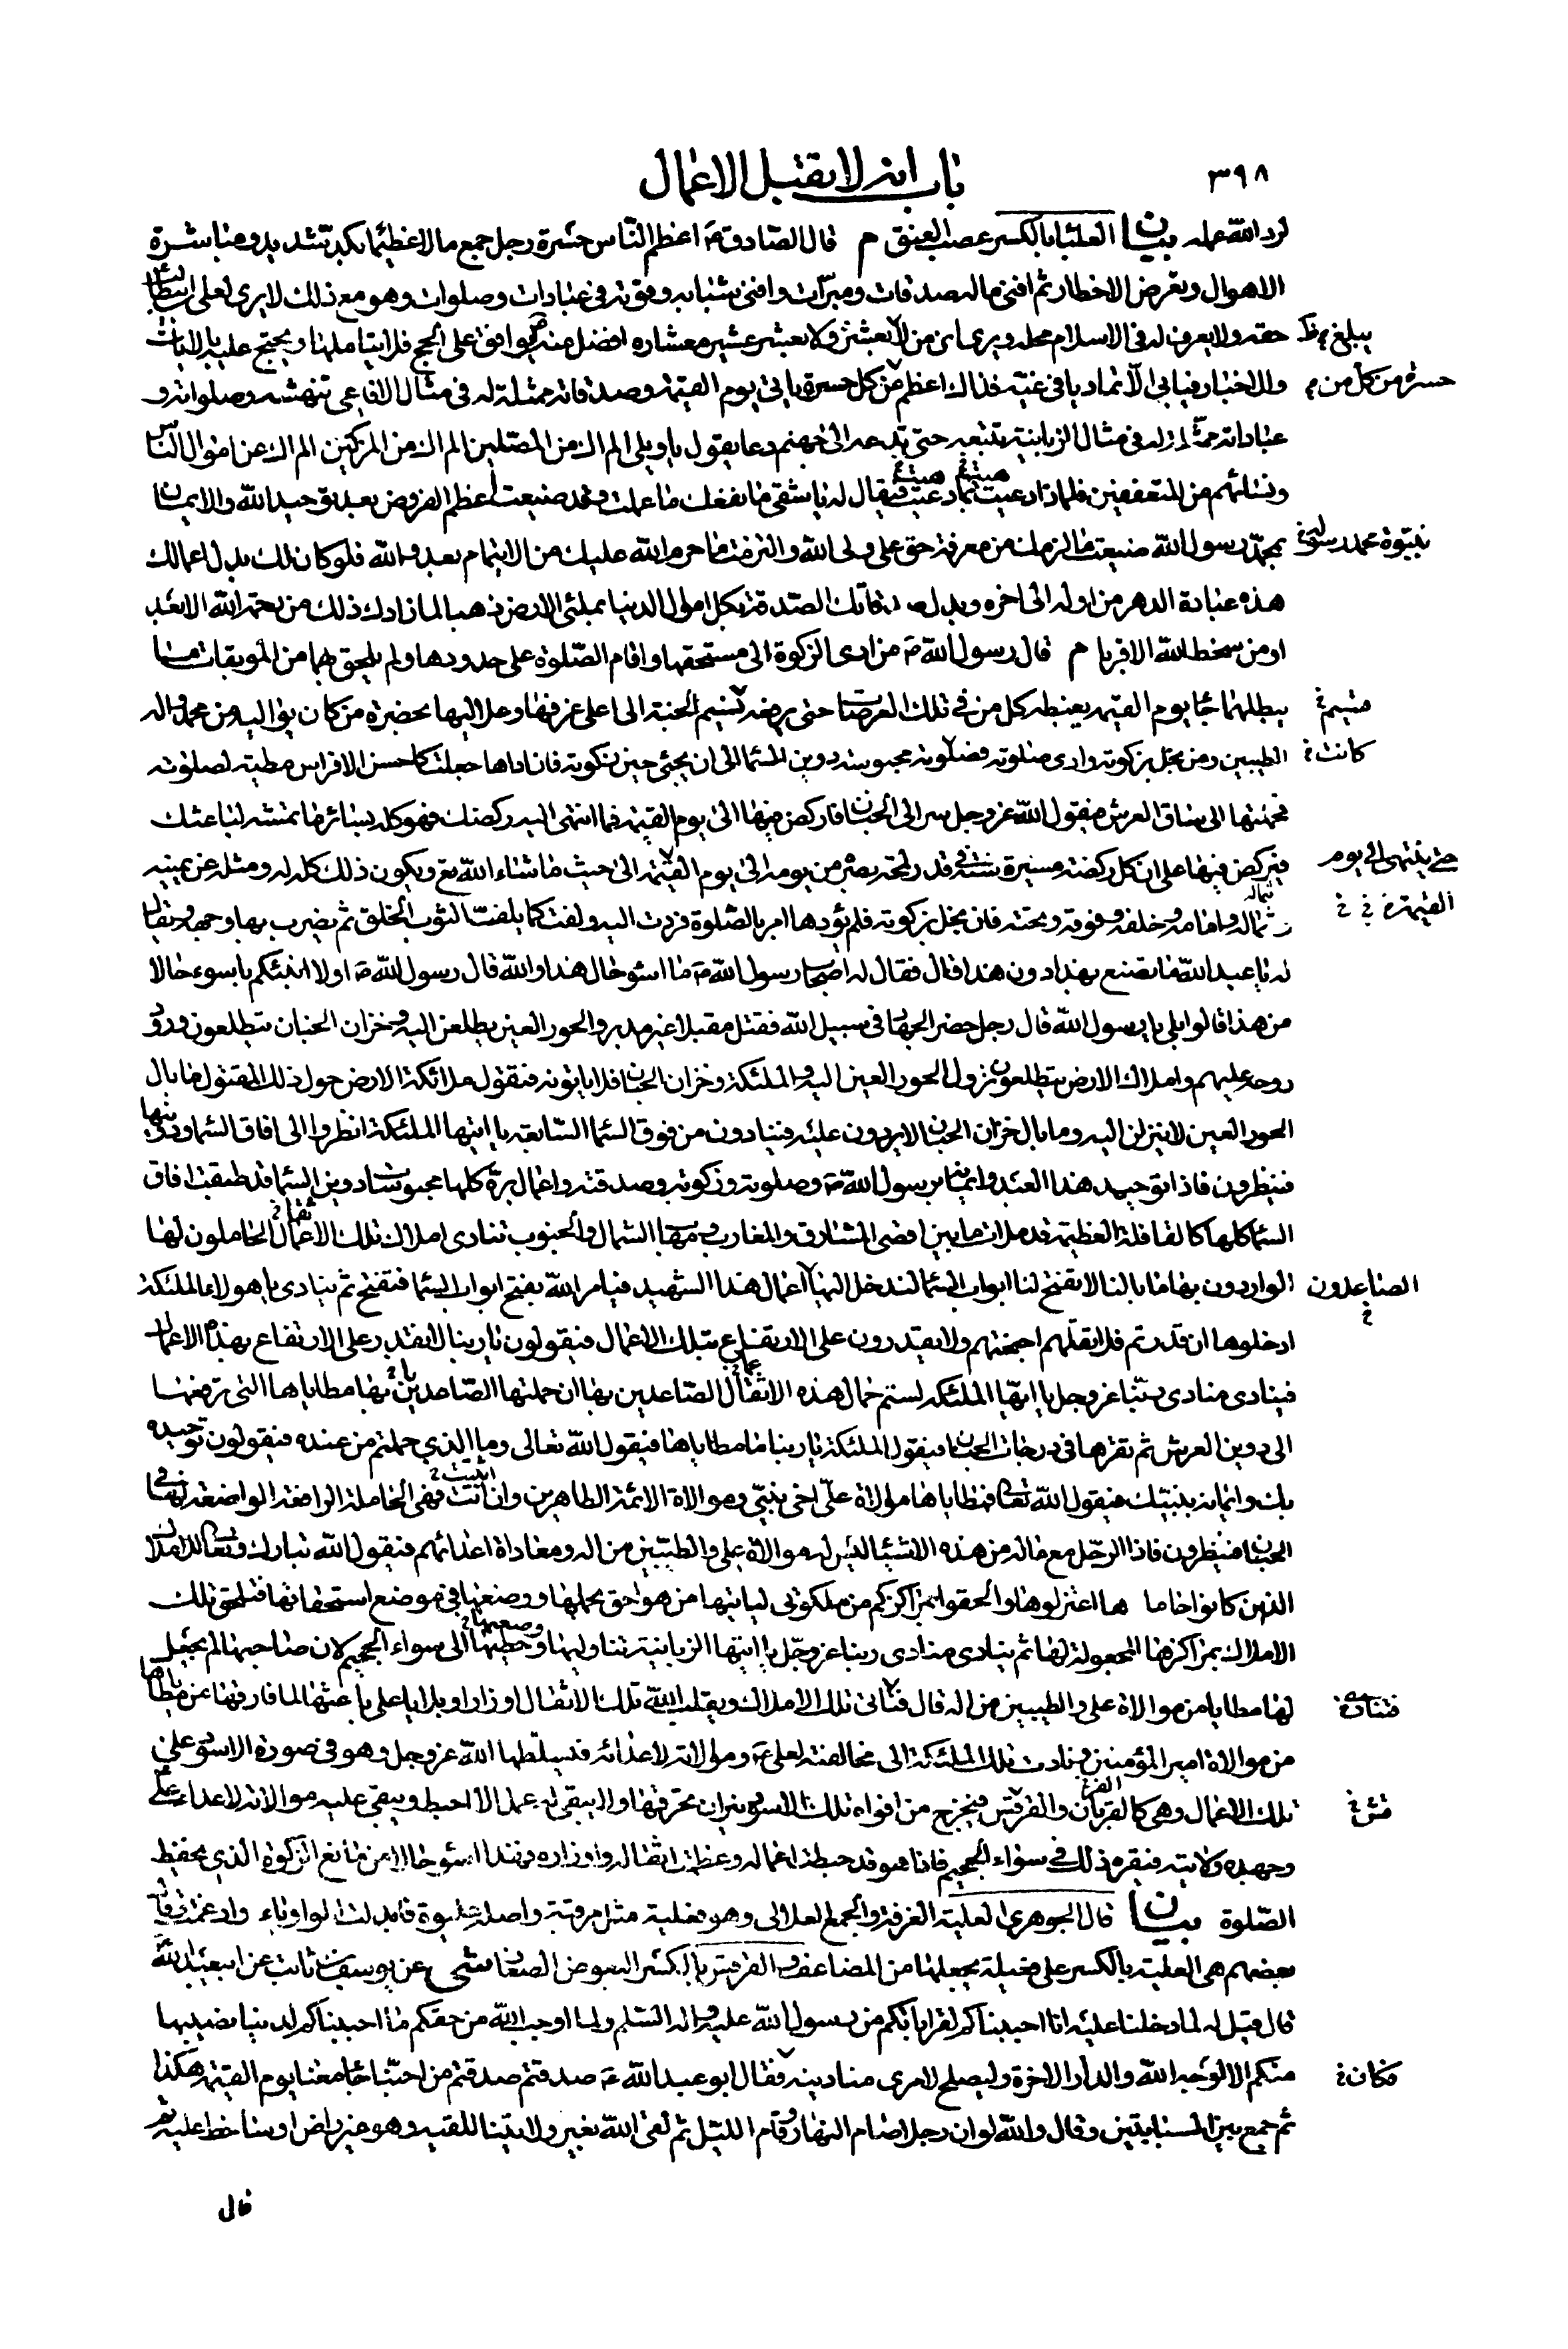 ٣٩٨
باب انه لا يقبل الاعمال
لرد الله عمله بيان العلباء بالكسر عصب العنق م قال الصادق ع اعظم الناس حسرة رجل جمع مالا عظيما بكد شديد ومباشرة
الاهوال وتعرض الاخطار ثم افنى ماله صدقات ومبرات وافنى شبابه وقوته في عبادات وصلوات وهو مع ذلك لا يرى لعلي ابن ابيطالب
حقه ولا يعرف له في الاسلام محله ويرى ان من لا بعشره ولا بعشر عشير معشاره افضل منه يواقف على الحجج فلا يتاملها ويحتج عليه بالايات
يبلغ
والاخبار فيابى الا تماديا في غيه فذاك اعظم من كل حسرة ياتي يوم القيمة وصدقاته ممثلة له في مثال الافاعي تنهشه وصلواته و
حسرة من كل من
عباداته ممثلة له في مثال الزبانية تتبعه حتى تدعه الى جهنم دعا يقول يا ويلي الم اك من المصلين الم اك من المزكين الم اك عن اموال الناس
ونسائهم من المتعففين فلماذا دهيت بما دهيت فيقال له يا شقي ما نفعك ما عملت وقد ضيعت اعظم الفروض بعد توحيد الله والايمان
بمحمد رسول الله ضيعت ما لزمك من معرفة حق علي ولي الله والتزمت ما حرم الله عليك من الايتمام بعدو الله فلو كان لك بدل اعمالك
بنبوة محمد رسول الله
هذه عبادة الدهر من اوله الى اخره وبدل صدقاتك الصدقة بكل اموال الدنيا بملئ الارض ذهبا لما زادك ذلك من رحمة الله الا بعدا
او من سخط الله الا قربا م قال رسول الله ص من ادى الزكوة الى مستحقها واقام الصلوة على حدودها ولم يلحق بهما من الموبقات ما
يبطلهما جاء يوم القيمة يغبطه كل من في تلك العرصات حتى يرفعه نسيم الجنة الى اعلى غرفها وعلاليها بحضرة من كان يواليه من محمد واله
الطيبين ومن بخل بزكوته وادى صلوته فصلوته محبوسة دوين السماء الى ان يجئ حين زكوته فان اداها جعلت كاحسن الافراس مطية لصلوته
كانت
فحملتها الى ساق العرش فيقول الله عز وجل سر الى الجنان فاركض فيها الى يوم القيمة فما انتهى اليه ركضك فهو كله بسائر ما تمسه لباعثك
فيركض فيها على ان كل ركضة مسيرة سنة في قدر لمحة بصره من يومه الى يوم القيمة الى حيث ما شاء الله تع ويكون ذلك كله له ومثله عن يمينه
حتى ينتهي الى يوم
القيمة
وشماله وامامه وخلفه وفوقه وتحته فان بخل بزكوته فلم يؤدها امر بالصلوة فردت اليه ولفت كما يلف الثوب الخلق ثم يضرب بها وجهه ويقال
له يا عبد الله ما تصنع بهذا دون هذا قال فقال له اصحاب رسول الله ص ما اسوء حال هذا والله قال رسول الله ص اولا انبئكم باسوء حالا
من هذا قالوا بلى يا رسول الله قال رجل حضر الجهاد في سبيل الله فقتل مقبلا غير مدبر والحور العين يطلعن اليه وخزان الجنان يتطلعون ورود
روحه عليهم واملاك الارض يتطلعون نزول الحور العين اليه والملئكة وخزان الجنان فلا ياتونه فتقول ملائكة الارض حول ذلك المقتول ما بال
الحور العين لا ينزلن اليه وما بال خزان الجنان لا يردون عليه فينادون من فوق السماء السابعة يا ايتها الملئكة انظروا الى افاق السماء ودوينها
فينظرون فاذا توحيد هذا العبد وايمانه برسول الله ص وصلوته وزكوته وصدقته واعمال بره كلها محبوسات دوين السماء قد طبقت افاق
السماء كلها كالقافلة العظيمة قد ملات ما بين اقصى المشارق والمغارب ومهاب الشمال والجنوب تنادي املاك تلك الاعمال الحاملون لها
الواردون بها ما بالنا لا تفتح لنا ابواب السماء لندخل اليها اعمال هذا الشهيد فيامر الله بفتح ابواب السماء فتفتح ثم ينادى يا هؤلاء الملئكة
الصاعدون
ادخلوها ان قدرتم فلا تقلهم اجنحتهم ولا يقدرون على الارتفاع بتلك الاعمال فيقولون يا ربنا لا نقدر على الارتفاع بهذه الاعمال
فينادي منادي ربنا عز وجل يا ايها الملئكة لستم حمال هذه الاثقال الصاعدين بها ان حملتها الصاعدين بها مطاياها التي ترفعها
الى دوين العرش ثم تقرها في درجات الجنان فيقول الملئكة يا ربنا ما مطاياها فيقول الله تعالى وما الذي حملتم من عنده فيقولون توحيده
بك وايمانه بنبيك فيقول الله تعالى فمطاياها موالاة علي اخي نبيي وموالاة الائمة الطاهرين وان اتت فهي الحاملة الرافعة الواضعة لها في
الجنان فينظرون فاذا الرجل مع ماله من هذه الاشياء ليس له موالاة علي والطيبين من اله ومعاداة اعدائهم فيقول الله تبارك وتعالى للاملاك
الذين كانوا حاملها اعتزلوها والحقوا بمراكزكم من ملكوتي لياتيها من هو احق بحملها ووضعها في موضع استحقاقها فتلحق تلك
الاملاك بمراكزها المجعولة لها ثم ينادي منادي ربنا عز وجل يا ايتها الزبانية تناوليها وحطيها الى سواء الجحيم لان صاحبها لم يجعل
لها مطايا من موالاة علي والطيبين من اله قال فتاتي تلك الاملاك ويقلب الله تلك الاثقال اوزارا وبلايا على باعثها لما فارقها عن مطاياها
من موالاة امير المؤمنين ونادت تلك الملئكة الى مخالفته لعلي ع وموالاته لاعدائه فيسلطها الله عز وجل وهو في صورة الاسود على
تلك الاعمال وهي كالغربان والقرقس فيخرج من افواه تلك الاسود نيران تحرقها ولا يبقى له عمل الا احبط ويبقى عليه موالاته لاعداء علي
وجحده ولايته فيقره ذلك في سواء الجحيم فاذا هو قد حبطت اعماله وعظمت اثقاله واوزاره فهذا اسوء حالا من مانع الزكوة الذي يحفظ
الصلوة بيان قال الجوهري العلية الغرفة والجمع العلالي وهو فعلية مثل مريقة واصله عليوة فابدلت الواو ياء وادغمت وقال
بعضهم هي العلية بالكسر على فعيلة يجعلها من المضاعف والقرقس بالكسر البعوض الصغار شى عن يوسف بن ثابت عن ابيعبد الله
قال قيل له لما دخلنا عليه انا احببناكم لقرابتكم من رسول الله عليه واله السلم ولما اوجب الله من حقكم ما احببناكم لدنيا نصيبها
منكم الا لوجه الله والدار الاخرة وليصلح لامرء منا دينه فقال ابو عبد الله ع صدقتم صدقتم من احبنا جاء معنا يوم القيمة هكذا
فكان
ثم جمع بين السبابتين وقال والله لو ان رجلا صام النهار وقام الليل ثم لقى الله بغير ولايتنا للقيه وهو غير راض او ساخط عليه ثم
قال